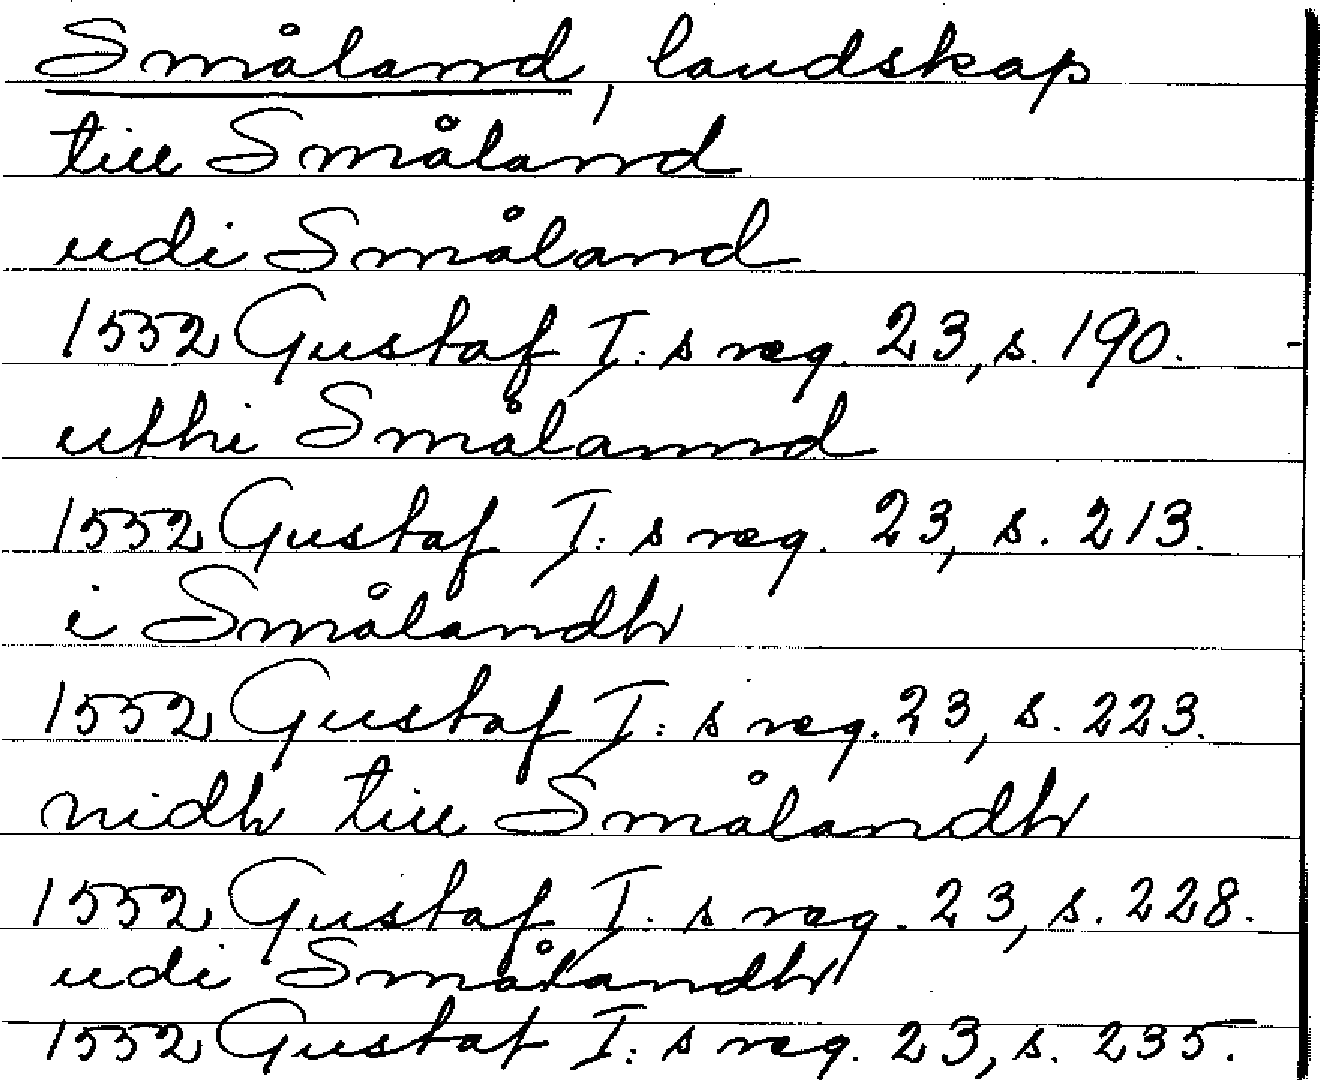 Småland, landskap
till Småland
udi Småland
1552 Gustaf I: s reg. 23, s. 190.
uthi Smålannd
1552 Gustaf I: s reg. 23, s. 213.
i Smålandh
1552 Gustaf I: s reg. 23, s. 223.
nidh till Smålandh
1552 Gustaf I: s reg. 23, s. 228.
udi Smålandh
1552 Gustaf I: s reg. 23, s. 235.